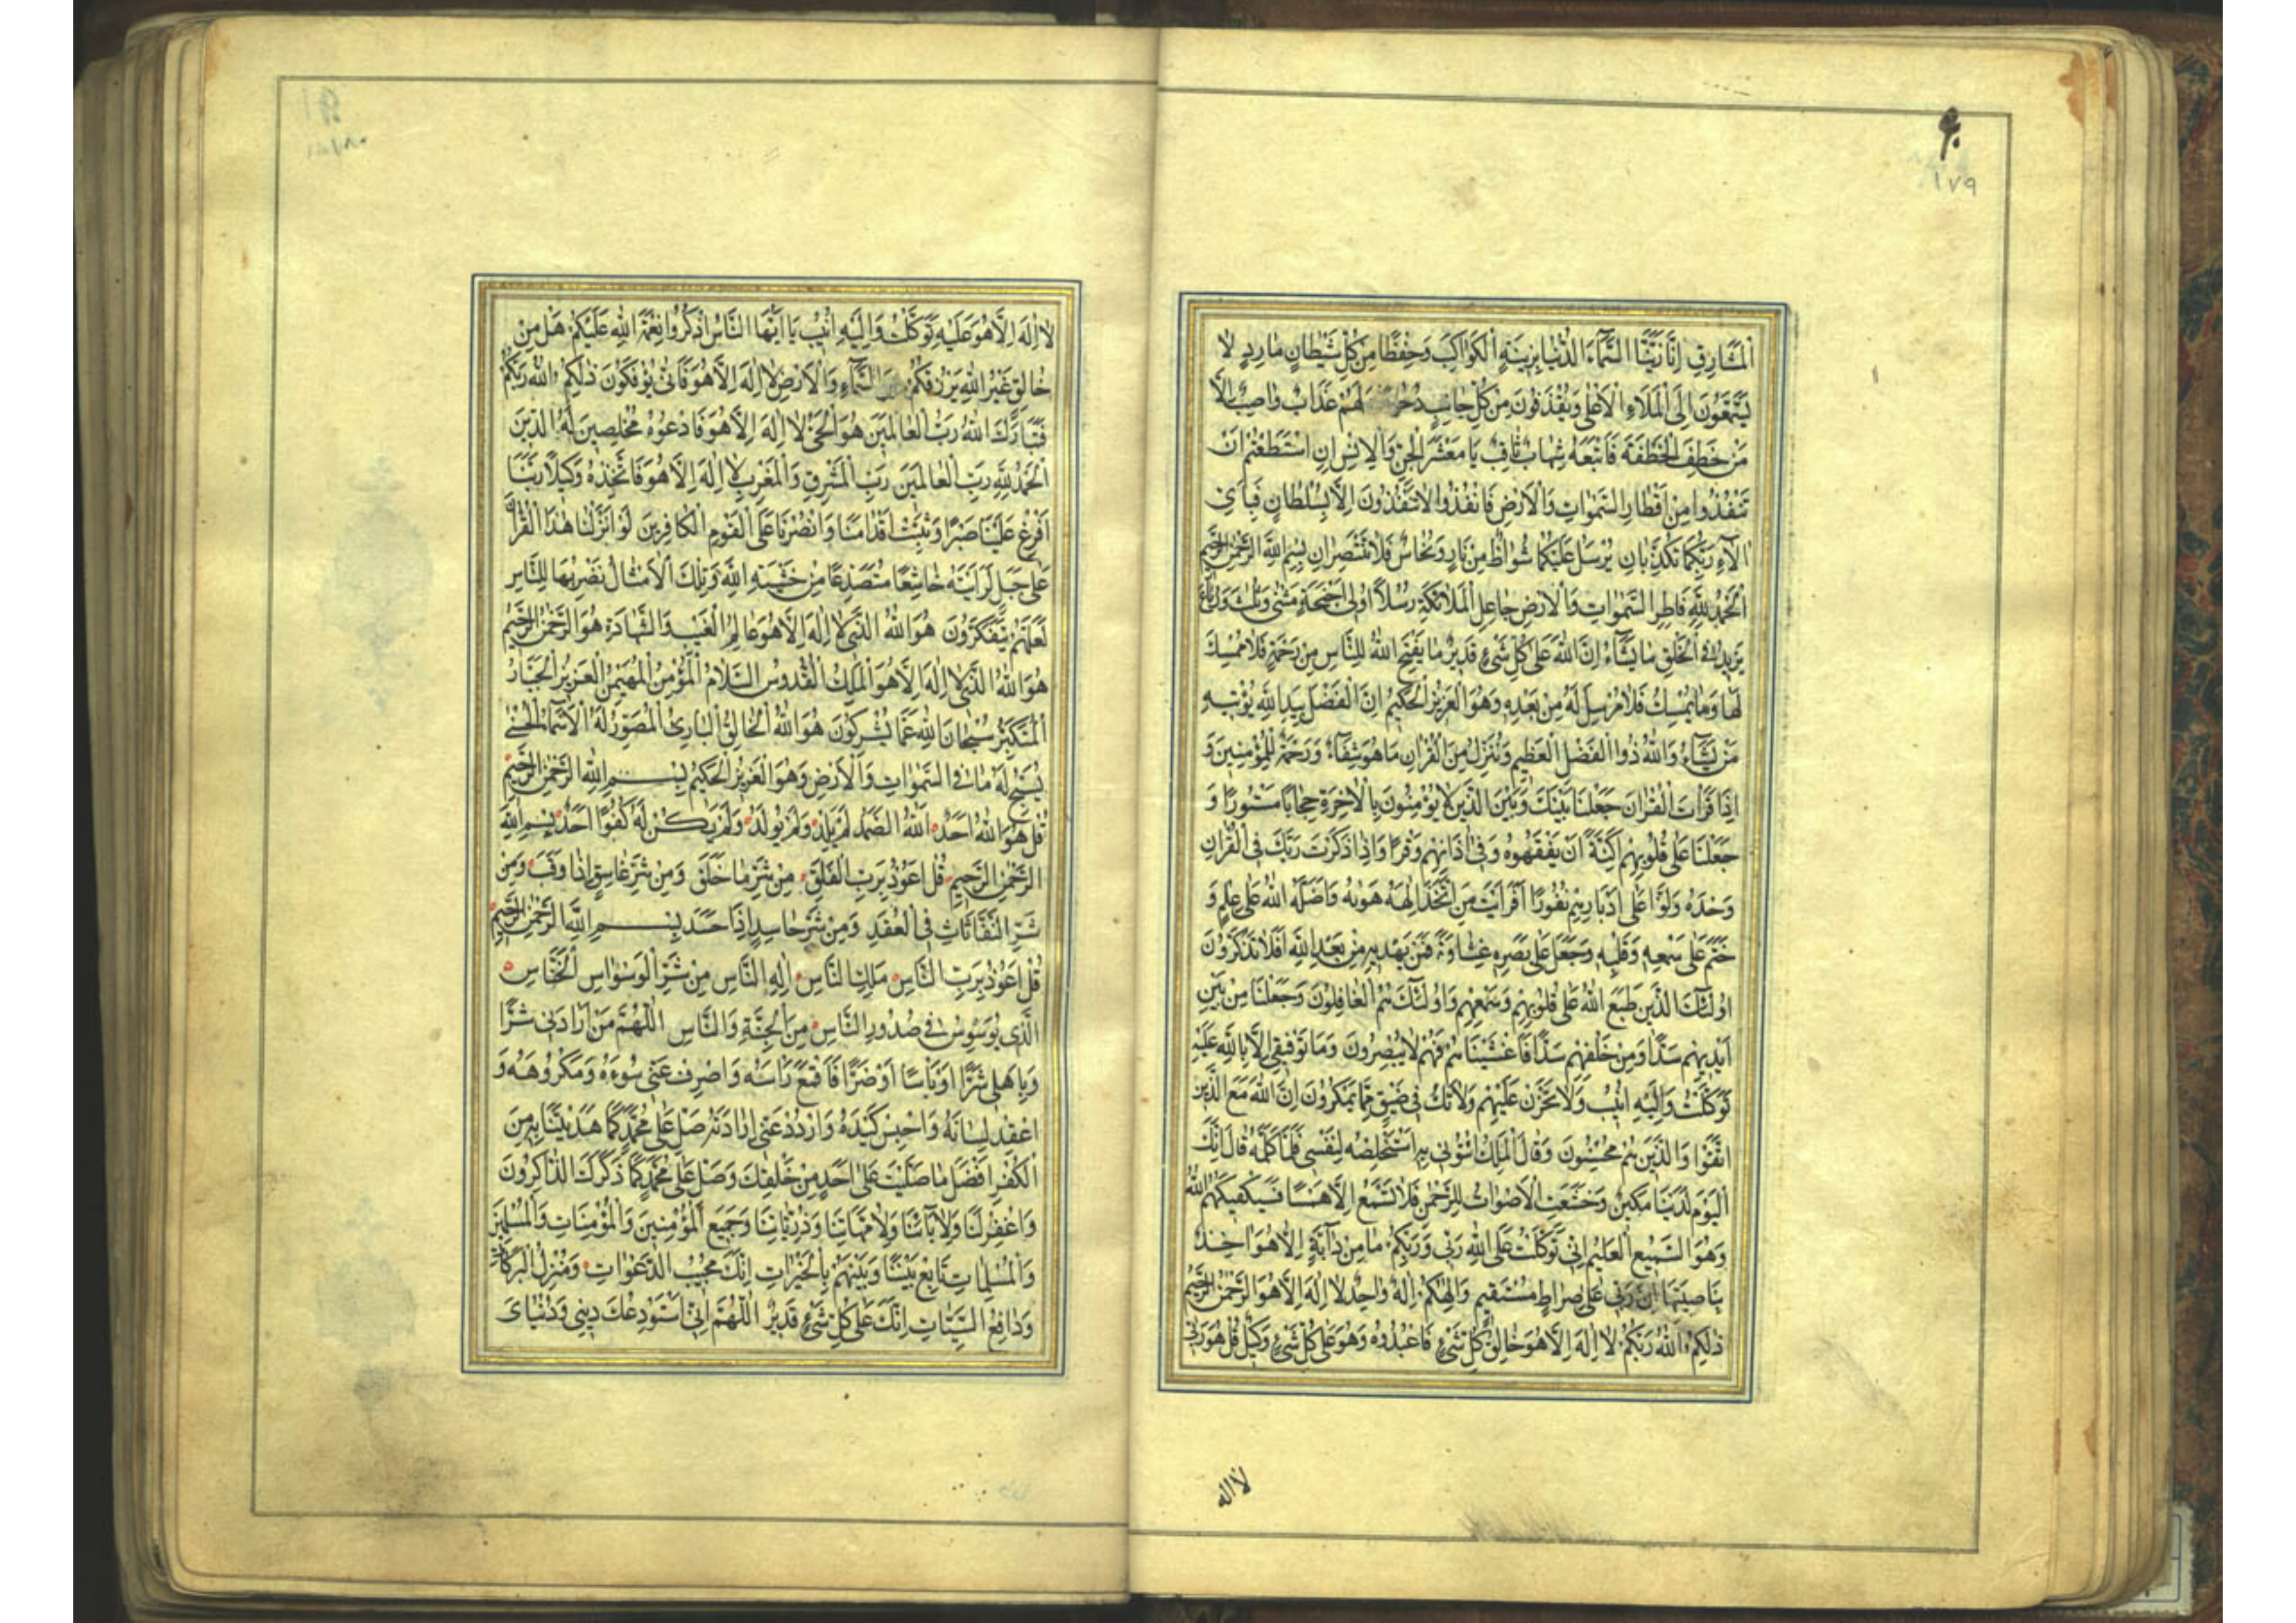 ۹۰
۱۷۹
الْمَشَارِقِ اِنَّا زَيَّنَّا السَّمَآءَ الدُّنْيَا بِزِينَةٍ الْكَوَاكِبِ وَحِفْظًا مِنْ كُلِّ شَيْطَانٍ مَارِدٍ لَا
يَسَّمَّعُونَ اِلَى الْمَلَاءِ الْاَعْلٰى وَيُقْذَفُونَ مِنْ كُلِّ جَانِبٍ دُحُورًا لَهُمْ عَذَابٌ وَاصِبٌ اِلَّا
مَنْ خَطِفَ الْخَطْفَةَ فَاَتْبَعَهُ شِهَابٌ ثَاقِبٌ يَا مَعْشَرَ الْجِنِّ وَالْاِنْسِ اِنِ اسْتَطَعْتُمْ اَنْ
تَنْفُذُوا مِنْ اَقْطَارِ السَّمٰوَاتِ وَالْاَرْضِ فَانْفُذُوا لَا تَنْفُذُونَ اِلَّا بِسُلْطَانٍ فَبِاَيِّ
اٰلَاءِ رَبِّكُمَا تُكَذِّبَانِ يُرْسَلُ عَلَيْكُمَا شُوَاظٌ مِنْ نَارٍ وَنُحَاسٌ فَلَا تَنْتَصِرَانِ بِسْمِ اللهِ الرَّحْمٰنِ الرَّحِيمِ
اَلْحَمْدُ لِلّٰهِ فَاطِرِ السَّمٰوَاتِ وَالْاَرْضِ جَاعِلِ الْمَلَائِكَةِ رُسُلًا اُولِى اَجْنِحَةٍ مَثْنٰى وَثُلٰثَ وَرُبَاعَ
يَزِيدُ فِي الْخَلْقِ مَا يَشَآءُ اِنَّ اللهَ عَلٰى كُلِّ شَيْءٍ قَدِيرٌ مَا يَفْتَحِ اللهُ لِلنَّاسِ مِنْ رَحْمَةٍ فَلَا مُمْسِكَ
لَهَا وَمَا يُمْسِكْ فَلَا مُرْسِلَ لَهُ مِنْ بَعْدِهِ وَهُوَ الْعَزِيزُ الْحَكِيمُ اِنَّ الْفَضْلَ بِيَدِ اللهِ يُؤْتِيهِ
مَنْ يَشَآءُ وَاللهُ ذُوا الْفَضْلِ الْعَظِيمِ وَنُنَزِّلُ مِنَ الْقُرْاٰنِ مَا هُوَ شِفَآءٌ وَرَحْمَةٌ لِلْمُؤْمِنِينَ وَ
اِذَا قَرَأْتَ الْقُرْاٰنَ جَعَلْنَا بَيْنَكَ وَبَيْنَ الَّذِينَ لَا يُؤْمِنُونَ بِالْاٰخِرَةِ حِجَابًا مَسْتُورًا وَ
جَعَلْنَا عَلٰى قُلُوبِهِمْ اَكِنَّةً اَنْ يَفْقَهُوهُ وَفِى اٰذَانِهِمْ وَقْرًا وَاِذَا ذَكَرْتَ رَبَّكَ فِي الْقُرْاٰنِ
وَحْدَهُ وَلَّوْا عَلٰى اَدْبَارِهِمْ نُفُورًا اَفَرَاَيْتَ مَنِ اتَّخَذَ اِلٰهَهُ هَوٰيهُ وَاَضَلَّهُ اللهُ عَلٰى عِلْمٍ وَ
خَتَمَ عَلٰى سَمْعِهِ وَقَلْبِهِ وَجَعَلَ عَلٰى بَصَرِهِ غِشَاوَةً فَمَنْ يَهْدِيهِ مِنْ بَعْدِ اللهِ اَفَلَا تَذَكَّرُونَ
اُولٰئِكَ الَّذِينَ طَبَعَ اللهُ عَلٰى قُلُوبِهِمْ وَسَمْعِهِمْ وَاُولٰئِكَ هُمُ الْغَافِلُونَ وَجَعَلْنَا مِنْ بَيْنِ
اَيْدِيهِمْ سَدًّا وَمِنْ خَلْفِهِمْ سَدًّا فَاَغْشَيْنَاهُمْ فَهُمْ لَا يُبْصِرُونَ وَمَا تَوْفِيقِى اِلَّا بِاللهِ عَلَيْهِ
تَوَكَّلْتُ وَاِلَيْهِ اُنِيبُ وَلَا تَحْزَنْ عَلَيْهِمْ وَلَا تَكُ فِي ضَيْقٍ مِمَّا يَمْكُرُونَ اِنَّ اللهَ مَعَ الَّذِينَ
اتَّقَوْا وَالَّذِينَ هُمْ مُحْسِنُونَ وَقَالَ الْمَلِكُ ائْتُونِى بِهِ اَسْتَخْلِصْهُ لِنَفْسِى فَلَمَّا كَلَّمَهُ قَالَ اِنَّكَ
الْيَوْمَ لَدَيْنَا مَكِينٌ وَخَشَعَتِ الْاَصْوَاتُ لِلرَّحْمٰنِ فَلَا تَسْمَعُ اِلَّا هَمْسًا فَسَيَكْفِيكَهُمُ اللهُ
وَهُوَ السَّمِيعُ الْعَلِيمُ اِنِّى تَوَكَّلْتُ عَلَى اللهِ رَبِّى وَرَبِّكُمْ مَا مِنْ دَآبَّةٍ اِلَّا هُوَ اٰخِذٌ
بِنَاصِيَتِهَا اِنَّ رَبِّى عَلٰى صِرَاطٍ مُسْتَقِيمٍ وَاِلٰهُكُمْ اِلٰهٌ وَاحِدٌ لَا اِلٰهَ اِلَّا هُوَ الرَّحْمٰنُ الرَّحِيمُ
ذٰلِكُمُ اللهُ رَبُّكُمْ لَا اِلٰهَ اِلَّا هُوَ خَالِقُ كُلِّ شَيْءٍ فَاعْبُدُوهُ وَهُوَ عَلٰى كُلِّ شَيْءٍ وَكِيلٌ قُلْ هُوَ رَبِّى
لا اله
لَا اِلٰهَ اِلَّا هُوَ عَلَيْهِ تَوَكَّلْتُ وَاِلَيْهِ اُنِيبُ يَا اَيُّهَا النَّاسُ اذْكُرُوا نِعْمَةَ اللهِ عَلَيْكُمْ هَلْ مِنْ
خَالِقٍ غَيْرُ اللهِ يَرْزُقُكُمْ مِنَ السَّمَآءِ وَالْاَرْضِ لَا اِلٰهَ اِلَّا هُوَ فَاَنّٰى تُؤْفَكُونَ ذٰلِكُمُ اللهُ رَبُّكُمْ
فَتَبَارَكَ اللهُ رَبُّ الْعَالَمِينَ هُوَ الْحَيُّ لَا اِلٰهَ اِلَّا هُوَ فَادْعُوهُ مُخْلِصِينَ لَهُ الدِّينَ
اَلْحَمْدُ لِلّٰهِ رَبِّ الْعَالَمِينَ رَبِّ الْمَشْرِقِ وَالْمَغْرِبِ لَا اِلٰهَ اِلَّا هُوَ فَاتَّخِذْهُ وَكِيلًا رَبَّنَا
اَفْرِغْ عَلَيْنَا صَبْرًا وَثَبِّتْ اَقْدَامَنَا وَانْصُرْنَا عَلَى الْقَوْمِ الْكَافِرِينَ لَوْ اَنْزَلْنَا هٰذَا الْقُرْاٰنَ
عَلٰى جَبَلٍ لَرَاَيْتَهُ خَاشِعًا مُتَصَدِّعًا مِنْ خَشْيَةِ اللهِ وَتِلْكَ الْاَمْثَالُ نَضْرِبُهَا لِلنَّاسِ
لَعَلَّهُمْ يَتَفَكَّرُونَ هُوَ اللهُ الَّذِى لَا اِلٰهَ اِلَّا هُوَ عَالِمُ الْغَيْبِ وَالشَّهَادَةِ هُوَ الرَّحْمٰنُ الرَّحِيمُ
هُوَ اللهُ الَّذِى لَا اِلٰهَ اِلَّا هُوَ الْمَلِكُ الْقُدُّوسُ السَّلَامُ الْمُؤْمِنُ الْمُهَيْمِنُ الْعَزِيزُ الْجَبَّارُ
الْمُتَكَبِّرُ سُبْحَانَ اللهِ عَمَّا يُشْرِكُونَ هُوَ اللهُ الْخَالِقُ الْبَارِئُ الْمُصَوِّرُ لَهُ الْاَسْمَآءُ الْحُسْنٰى
يُسَبِّحُ لَهُ مَا فِى السَّمٰوَاتِ وَالْاَرْضِ وَهُوَ الْعَزِيزُ الْحَكِيمُ بِسْمِ اللهِ الرَّحْمٰنِ الرَّحِيمِ
قُلْ هُوَ اللهُ اَحَدٌ اَللهُ الصَّمَدُ لَمْ يَلِدْ وَلَمْ يُولَدْ وَلَمْ يَكُنْ لَهُ كُفُوًا اَحَدٌ بِسْمِ اللهِ
الرَّحْمٰنِ الرَّحِيمِ قُلْ اَعُوذُ بِرَبِّ الْفَلَقِ مِنْ شَرِّ مَا خَلَقَ وَمِنْ شَرِّ غَاسِقٍ اِذَا وَقَبَ وَمِنْ
شَرِّ النَّفَّاثَاتِ فِى الْعُقَدِ وَمِنْ شَرِّ حَاسِدٍ اِذَا حَسَدَ بِسْمِ اللهِ الرَّحْمٰنِ الرَّحِيمِ
قُلْ اَعُوذُ بِرَبِّ النَّاسِ مَلِكِ النَّاسِ اِلٰهِ النَّاسِ مِنْ شَرِّ الْوَسْوَاسِ الْخَنَّاسِ
الَّذِى يُوَسْوِسُ فِى صُدُورِ النَّاسِ مِنَ الْجِنَّةِ وَالنَّاسِ اَللّٰهُمَّ مَنْ اَرَادَنِى شَرًّا
وَبِاَهْلِى شَرًّا اَوْ بَاْسًا اَوْ ضَرًّا فَاقْمَعْ رَاْسَهُ وَاصْرِفْ عَنِّى سُوءَهُ وَمَكْرُوهَهُ وَ
اعْقِدْ لِسَانَهُ وَاحْبِسْ كَيْدَهُ وَارْدُدْ عَنِّى اِرَادَتَهُ صَلِّ عَلٰى مُحَمَّدٍ كَمَا هَدَيْتَنَا بِهِ مِنَ
الْكُفْرِ اَفْضَلَ مَا صَلَّيْتَ عَلٰى اَحَدٍ مِنْ خَلْقِكَ وَصَلِّ عَلٰى مُحَمَّدٍ كَمَا ذَكَرَكَ الذَّاكِرُونَ
وَاغْفِرْ لَنَا وَلِاٰبَآئِنَا وَلِاُمَّهَاتِنَا وَذُرِّيَّاتِنَا وَجَمِيعِ الْمُؤْمِنِينَ وَالْمُؤْمِنَاتِ وَالْمُسْلِمِينَ
وَالْمُسْلِمَاتِ تَابِعْ بَيْنَنَا وَبَيْنَهُمْ بِالْخَيْرَاتِ اِنَّكَ مُجِيبُ الدَّعَوَاتِ وَمُنْزِلُ الْبَرَكَاتِ
وَدَافِعُ السَّيِّئَاتِ اِنَّكَ عَلٰى كُلِّ شَيْءٍ قَدِيرٌ اَللّٰهُمَّ اِنِّى اَسْتَوْدِعُكَ دِينِى وَدُنْيَاىَ